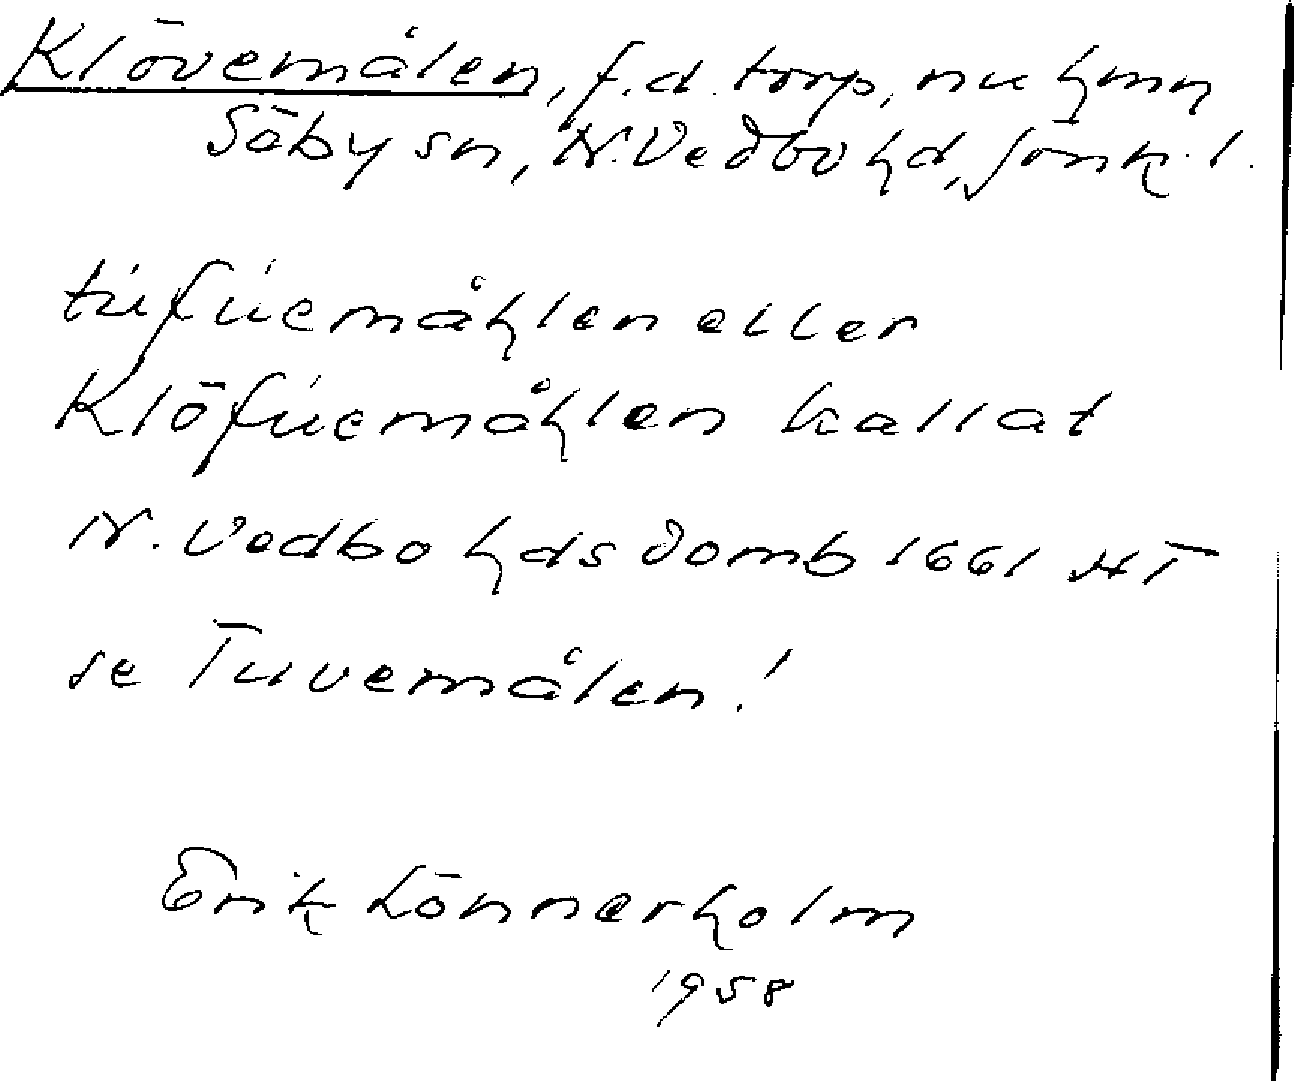 Klövemålen, f.d. torp, nu hmn
Säby sn, N. Vedbo hd, Jönk. l.
tufuemåhlen eller
Klöfuemåhlen kallat
N. Vedbo hds domb 1661 HT
se Tuvemålen!
Erik Lönnerholm
1958